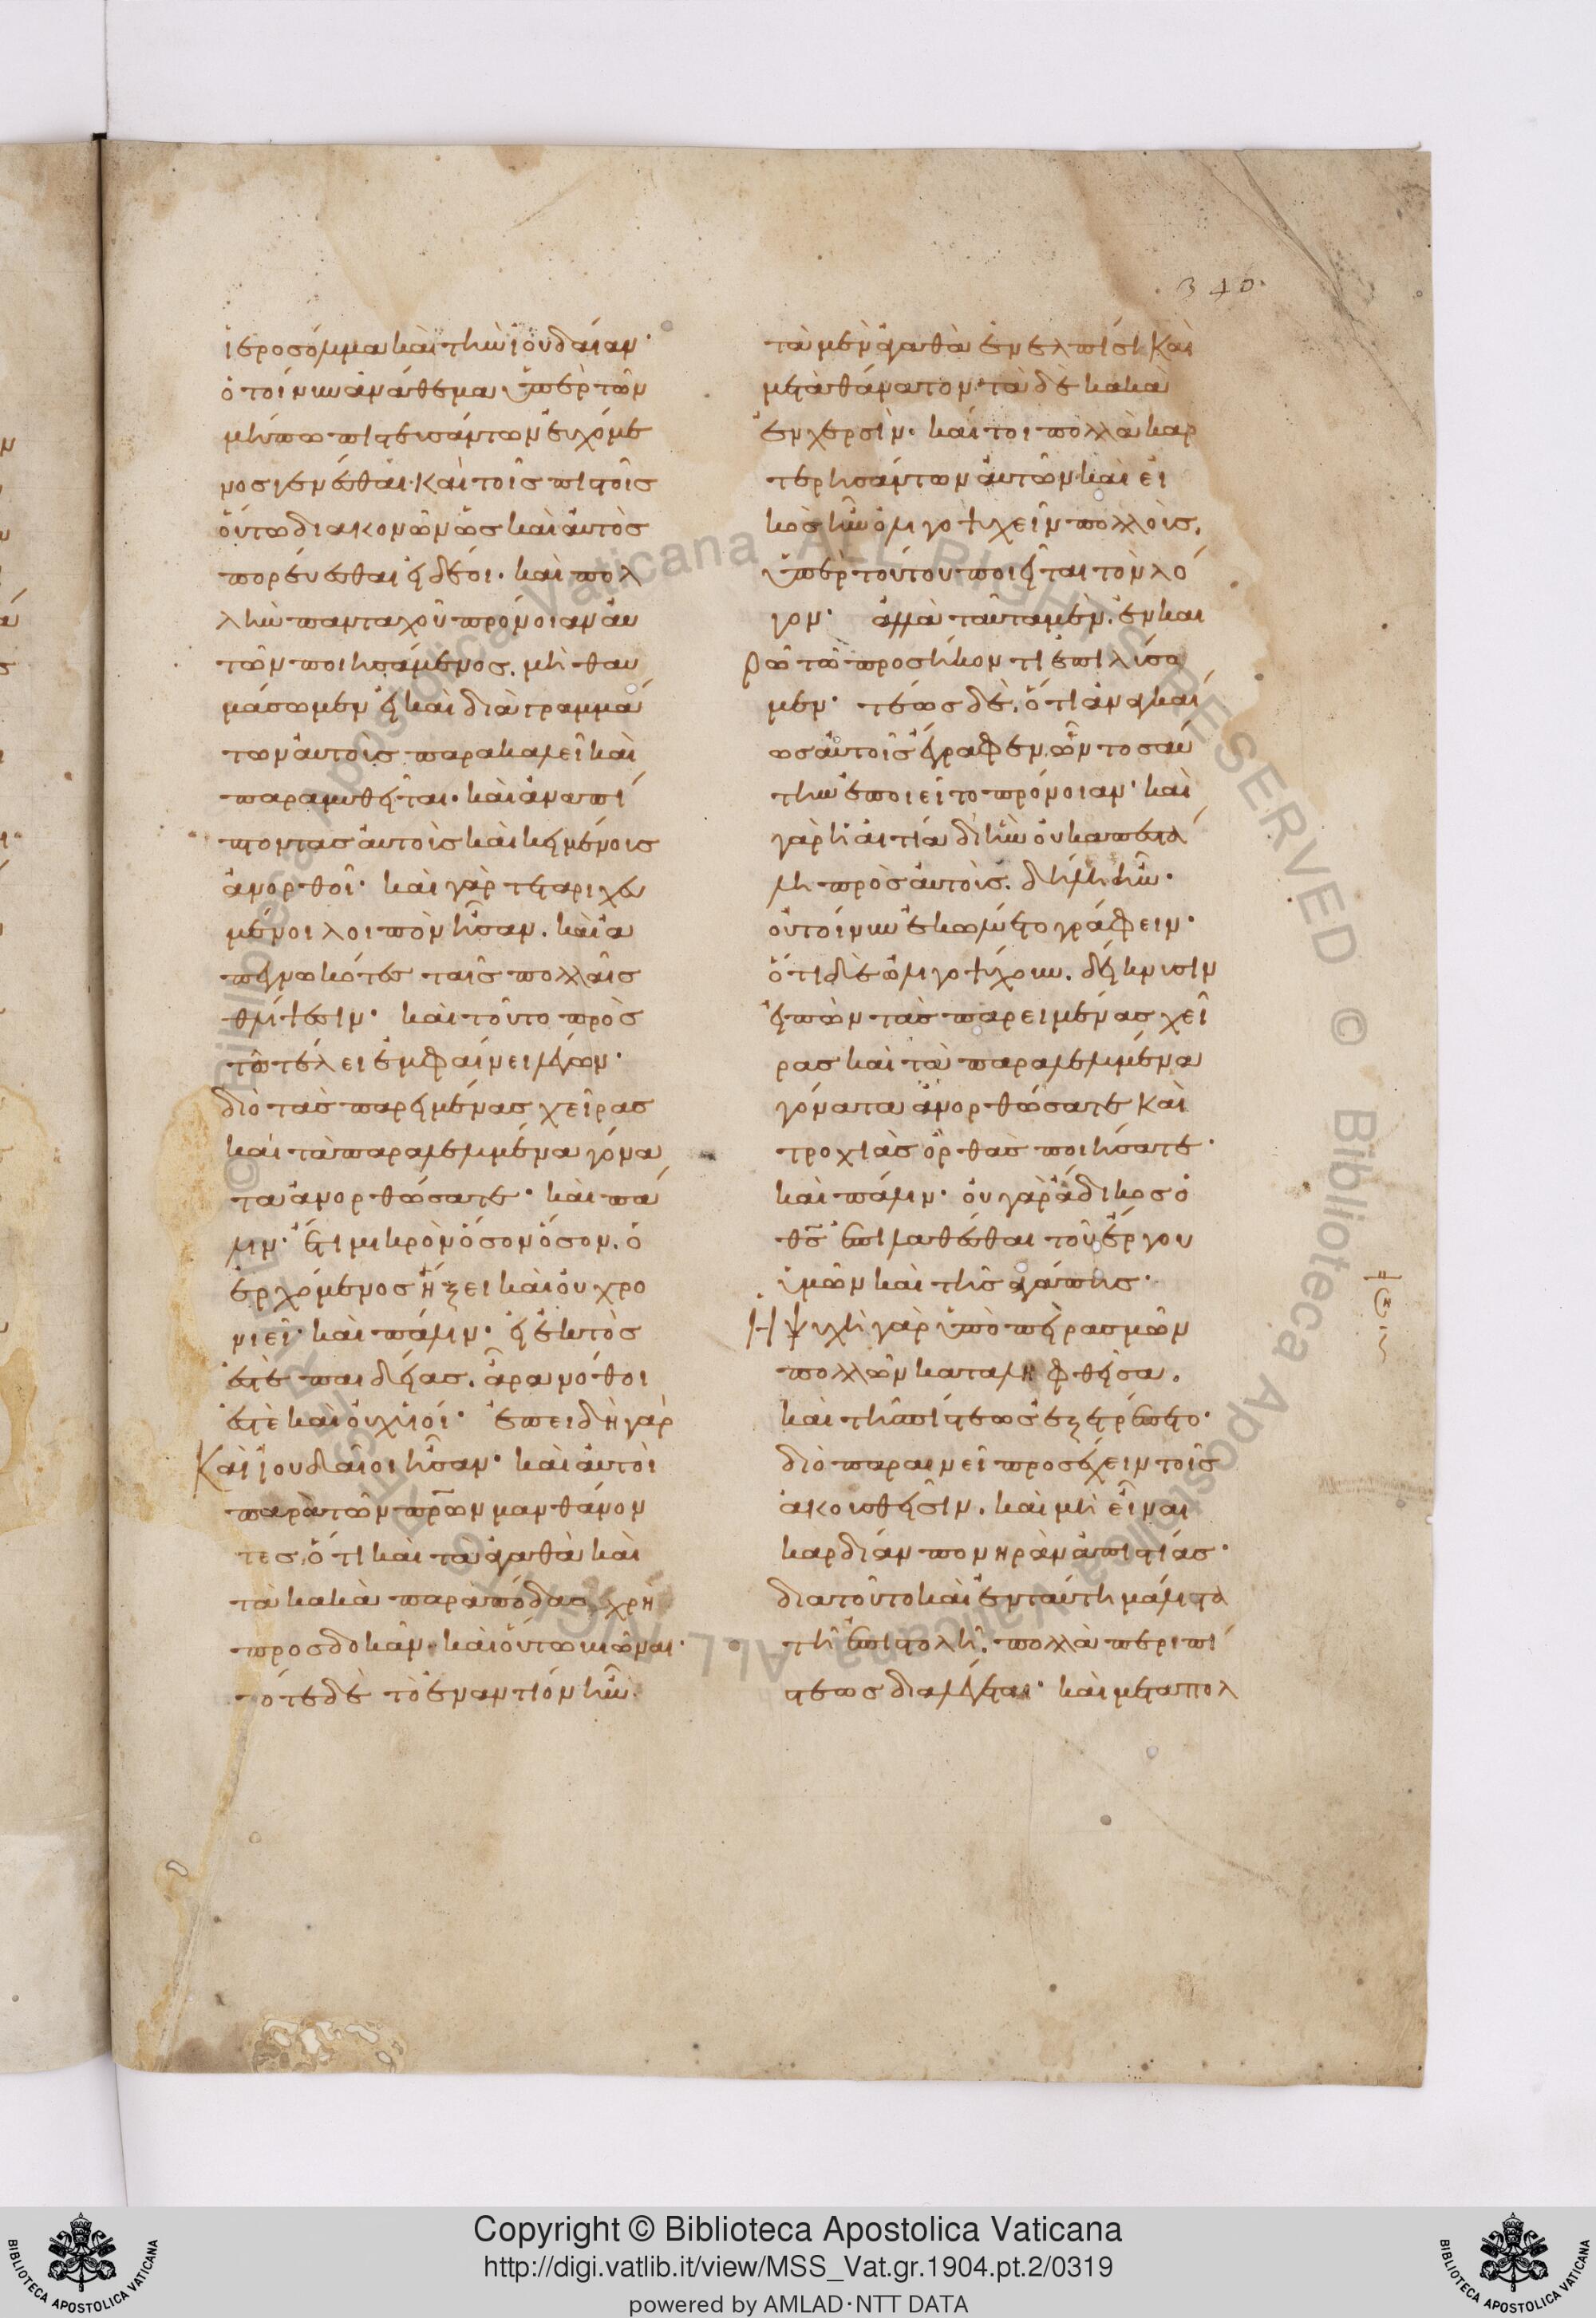 340.
ἱεροσόλυμα καὶ τὴν ἰουδαίαν·
ὁ τοίνυν ἀνάθεμα ὑπὲρ τῶν
μήπω πιστευσάντων εὐχόμε
νος γενέσθαι· καὶ τοῖς πιστοῖς
οὕτω διακονῶν ὡς καὶ αὐτὸς
πορεύεσθαι εἰ δέοι· καὶ πολ
λὴν πανταχοῦ πρόνοιαν αὐ
τῶν ποιησάμενος, μὴ θαυ
μάσωμεν εἰ καὶ διὰ γραμμά
των αὐτοὺς παρακαλεῖ καὶ
παραμυθεῖται· καὶ ἀναπί
πτοντας αὐτοὺς καὶ κειμένους
ἀνορθοῖ· καὶ γὰρ τεταριχευ
μένοι λοιπὸν ἦσαν· καὶ ἀ
πειρηκότες ταῖς πολλαῖς
θλίψεσιν· καὶ τοῦτο πρὸς
τῷ τέλει ἐμφαίνει λέγων·
διὸ τὰς παρειμένας χεῖρας
καὶ τὰ παραλελυμένα γόνα
τα ἀνορθώσατε· καὶ πά
λιν· ἔτι μικρὸν ὅσον ὅσον, ὁ
ἐρχόμενος ἥξει καὶ οὐ χρο
νιεῖ· καὶ πάλιν· εἰ ἐκτός
ἐστε παιδείας, ἄρα νόθοι
ἐστὲ καὶ οὐχ υἱοί· ἐπειδὴ γὰρ
Καὶ ἰουδαῖοι ἦσαν· καὶ αὐτοὶ
παρὰ τῶν πρων μανθάνον
τες, ὅτι καὶ τὰ ἀγαθὰ καὶ
τὰ κακὰ παρὰ πόδας χρὴ
προσδοκᾶν· καὶ οὕτω
τότε δὲ τὸ ἐναντίον ἦν·
τὰ μὲν ἀγαθὰ ἐν ἐλπίσι καὶ
μετὰ θάνατον· τὰ δὲ κακὰ
ἐν χερσίν· καί τοι πολλὰ καρ
τερησάντων αὐτῶν καὶ εἰ
κὸς ἦν ὀλιγοψυχεῖν πολλούς.
ὑπὲρ τούτου ποιεῖται τὸν λό
γον· ἀλλὰ ταῦτα μὲν, ἐν και
ρῷ τῷ προσήκοντι ἐπιλύσο
μεν· τέως δέ, ὅτι ἀναγκαί
ως αὐτοῖς ἔγραφεν, ὧν τοσαύ
την ἐποιεῖτο πρόνοιαν· καὶ
γὰρ ἡ αἰτία δι' ἣν οὐκ ἀπεστά
λη πρὸς αὐτούς, δήλη ἦν·
οὐ τοίνυν ἐκωλύετο γράφειν·
ὅτι δὲ ὠλιγοψύχουν, δείκνυσιν
εἰπὼν τὰς παρειμένας χεῖ
ρας καὶ τὰ παραλελυμένα
γόνατα ἀνορθώσατε καὶ
τροχιὰς ὀρθὰς ποιήσατε·
καὶ πάλιν· οὐ γὰρ ἄδικος ὁ
θς ἐπιλαθέσθαι τοῦ ἔργου
ὑμῶν καὶ τῆς ἀγάπης·
Ἡ ψυχὴ γὰρ ὑπὸ πειρασμῶν
πολλῶν καταληφθεῖσα,
καὶ τῆς πίστεως ἐξετρέπετο·
διὸ παραινεῖ προσέχειν τοῖς
ἀκουσθεῖσιν, καὶ μὴ εἶναι
καρδίαν πονηρὰν ἀπιστίας·
διατοῦτο καὶ ἐν ταύτη μάλιστα
τῆ ἐπιστολῆ, πολλὰ περὶ πί
στεως διαλέγεται· καὶ μετὰ πολ
Copyright © Biblioteca Apostolica Vaticana
http://digi.vatlib.it/view/MSS_Vat.gr.1904.pt.2/0319
powered by AMLAD·NTT DATA